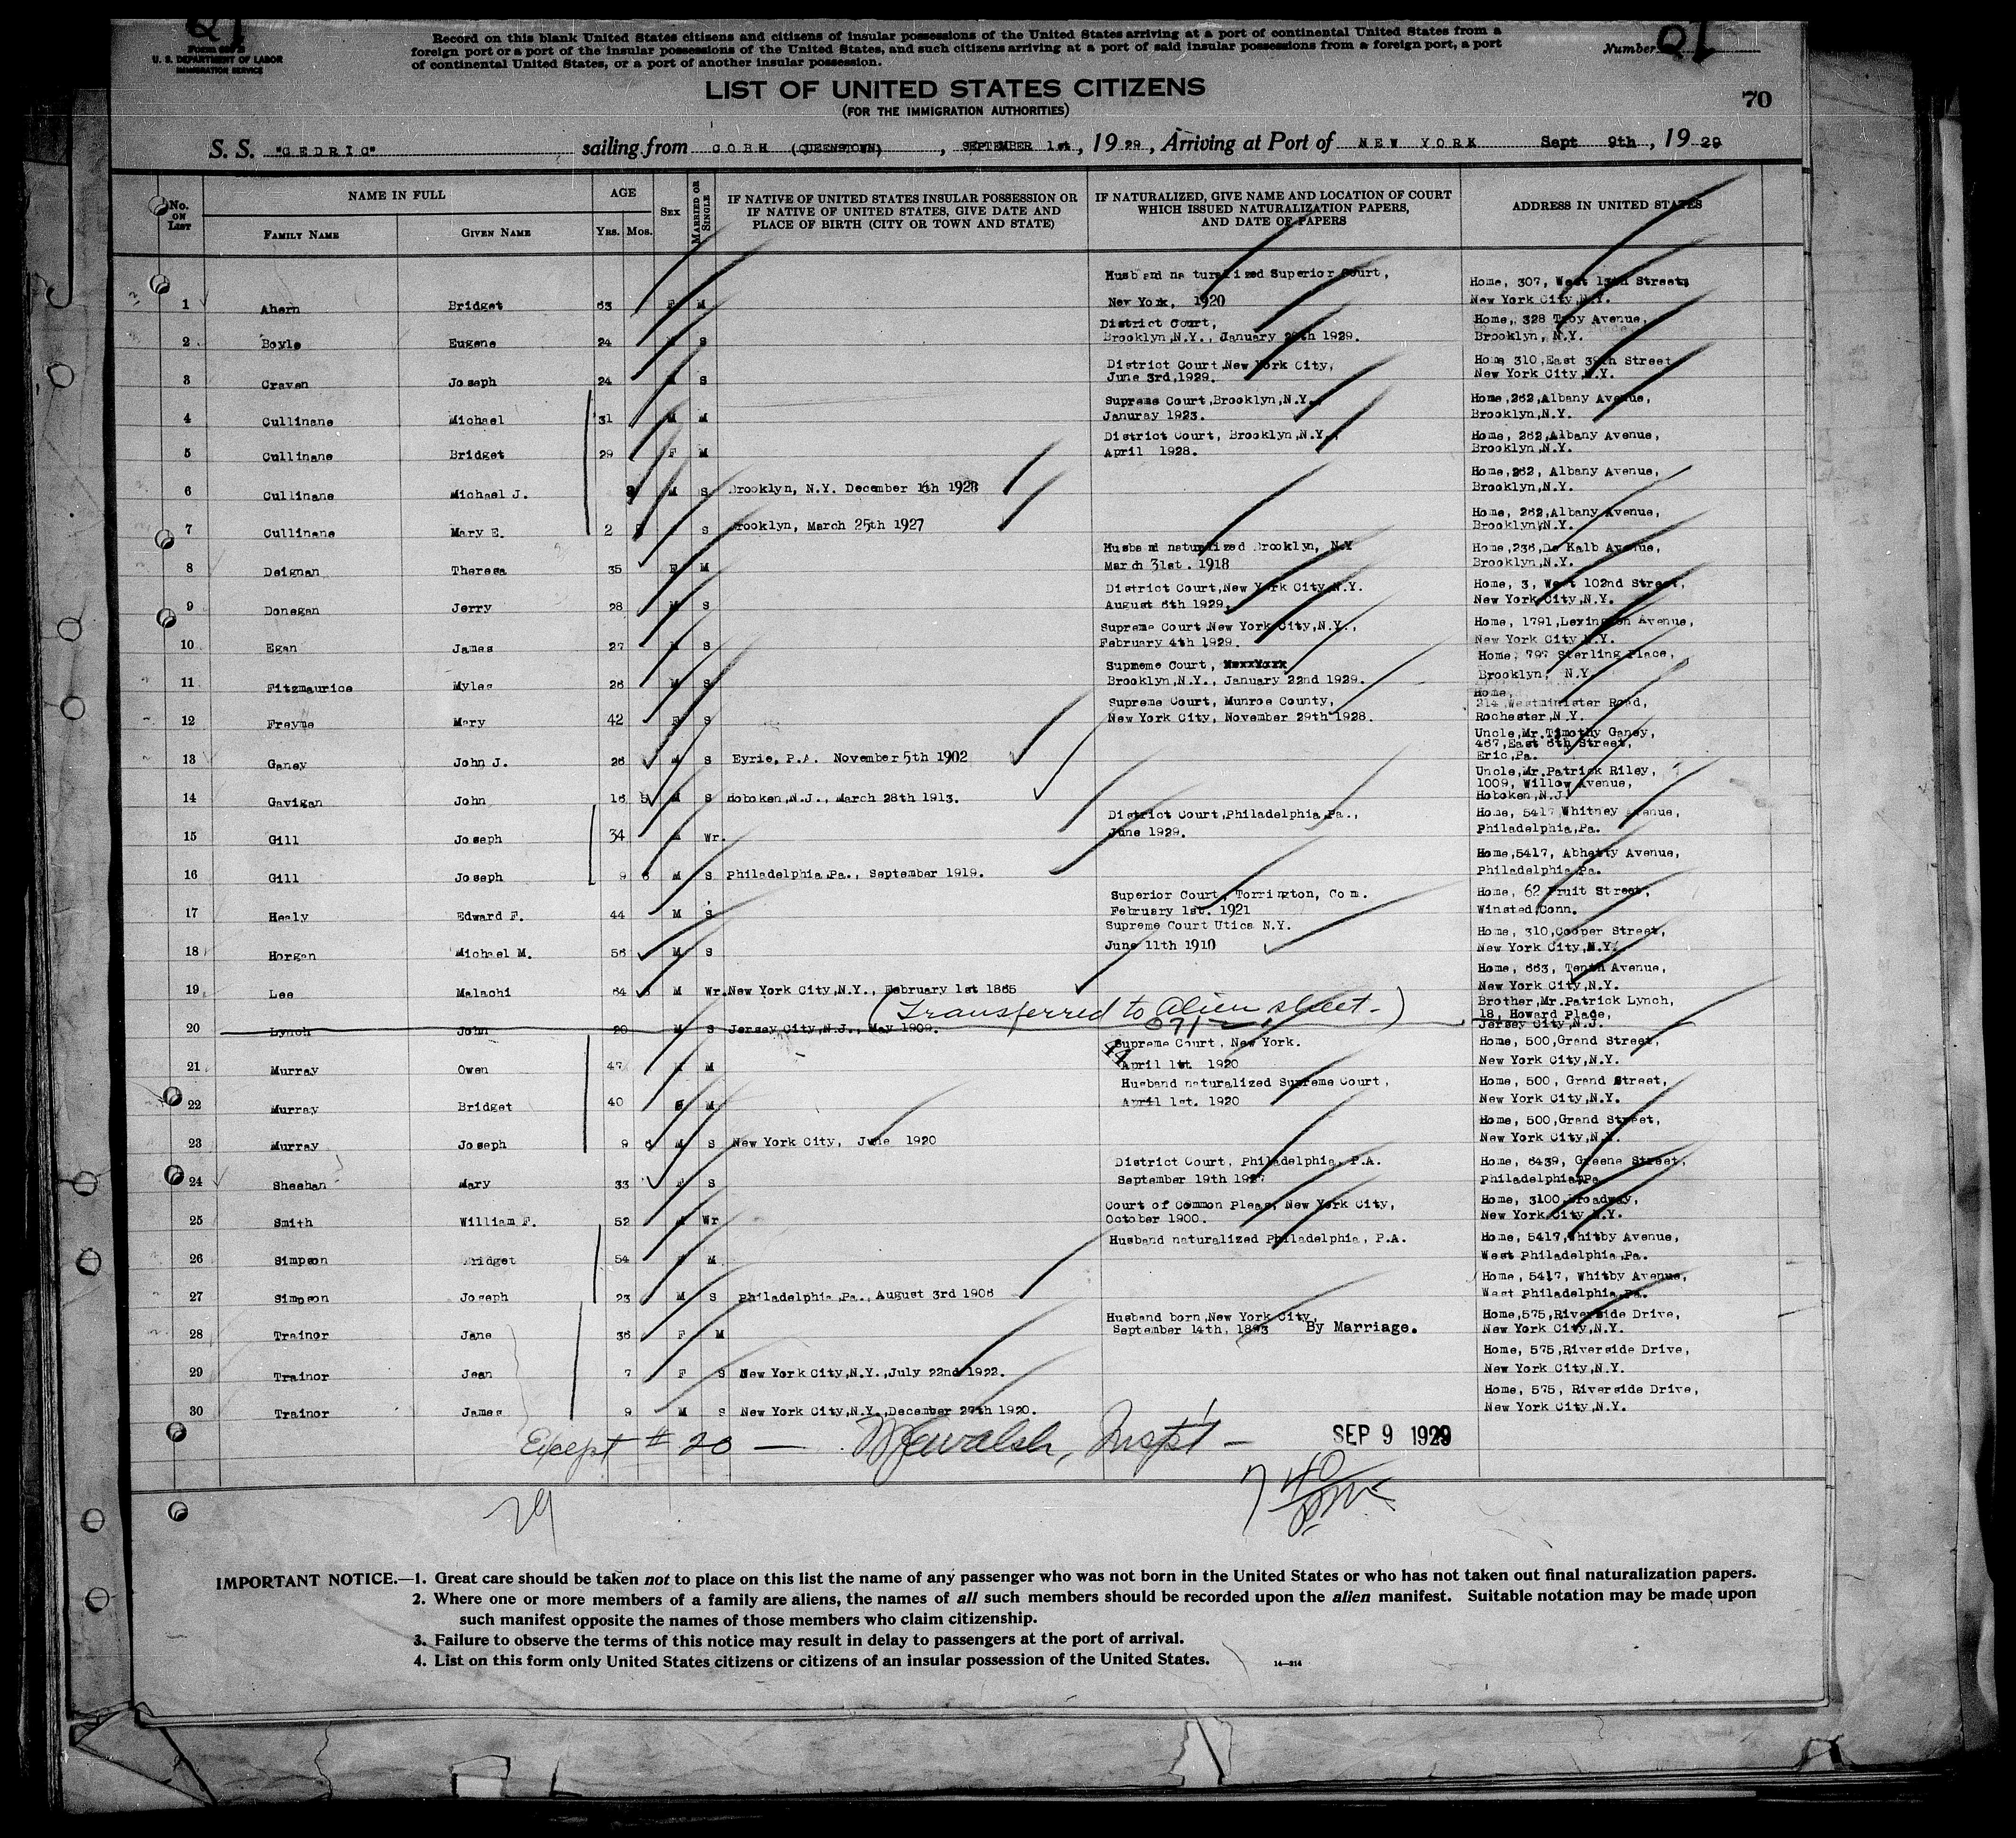 Form 630 B
U. S. DEPARTMENT OF LABOR
IMMIGRATION SERVICE
Record on this blank United States citizens and citizens of insular possessions of the United States arriving at a port of continental United States from a
foreign port or a port of the insular possessions of the United States, and such citizens arriving at a port of said insular possessions from a foreign port, a port
of continental United States, or a port of another insular possession.
Number
LIST OF UNITED STATES CITIZENS
(FOR THE IMMIGRATION AUTHORITIES)
70
S. S. "CEDRIC" sailing from COBH (QUEENSTOWN), SEPTEMBER 1st, 1929, Arriving at Port of NEW YORK Sept 9th, 1929
No. ON LIST
NAME IN FULL
FAMILY NAME
GIVEN NAME
AGE
YRS. MOS.
SEX
MARRIED OR SINGLE
IF NATIVE OF UNITED STATES INSULAR POSSESSION OR
IF NATIVE OF UNITED STATES, GIVE DATE AND
PLACE OF BIRTH (CITY OR TOWN AND STATE)
IF NATURALIZED, GIVE NAME AND LOCATION OF COURT
WHICH ISSUED NATURALIZATION PAPERS,
AND DATE OF PAPERS
ADDRESS IN UNITED STATES
1 Ahern Bridget 63 F M Husband naturalized Superior Court, New York, 1920 Home, 307, West 13th Street, New York City,N.Y.
2 Boyle Eugene 24 M S District Court, Brooklyn,N.Y., January 29th 1929. Home, 328 Troy Avenue, Brooklyn, N.Y.
3 Craven Joseph 24 M S District Court,New York City, June 3rd,1929. Home 310,East 39th Street New York City,N.Y.
4 Cullinane Michael 31 M M Supreme Court,Brooklyn,N.Y., Januray 1923. Home,262,Albany Avenue, Brooklyn,N.Y.
5 Cullinane Bridget 29 F M District Court, Brooklyn,N.Y., April 1928. Home, 262,Albany Avenue, Brooklyn,N.Y.
6 Cullinane Michael J. M S Brooklyn, N.Y. December 1928 Home,262, Albany Avenue, Brooklyn,N.Y.
7 Cullinane Mary E. 2 S Brooklyn, March 25th 1927 Home, 262,Albany Avenue, Brooklyn,N.Y.
8 Deignan Theresa 35 F M Husband naturalized Brooklyn, N.Y March 31st. 1918 Home,236,De Kalb Avenue, Brooklyn,N.Y.
9 Donegan Jerry 28 M S District Court,New York City,N.Y. August 6th 1929. Home, 3, West 102nd Street, New York City,N.Y.
10 Egan James 27 M S Supreme Court New York City,N.Y., February 4th 1929. Home, 1791,Lexington Avenue, New York City N.Y.
11 Fitzmaurice Myles 26 M S Supmeme Court, Brooklyn,N.Y., January 22nd 1929. Home, 797 Sterling Place, Brooklyn, N.Y.
12 Freyne Mary 42 F S Supreme Court, Munroe County, New York City, November 29th 1928. Home, 214 Westminister Road, Rochester,N.Y.
13 Ganey John J. 26 M S Eyrie, P.A. November 5th 1902 Uncle,Mr.Timothy Ganey, 467,East 8th Street, Eric,Pa.
14 Gavigan John 16 5 M S Hoboken,N.J., March 28th 1913. Uncle,Mr.Patrick Riley, 1009, Willow Avenue, Hoboken,N.J.
15 Gill Joseph 34 M Wr. District Court,Philadelphia,Pa., June 1929. Home, 5417 Whitney Avenue, Philadelphia,Pa.
16 Gill Joseph 9 6 M S Philadelphia,Pa., September 1919. Home,5417, Abhetty Avenue, Philadelphia,Pa.
17 Healy Edward F. 44 M S Superior Court, Torrington, Conn. February 1st. 1921 Home, 62 Fruit Street, Winsted,Conn.
18 Horgan Michael M. 56 M S Supreme Court Utica N.Y. June 11th 1910 Home, 310,Cooper Street, New York City,N.Y.
19 Lee Malachi 64 6 M Wr. New York City,N.Y., February 1st 1865 Home, 663, Tenth Avenue, New York City,N.Y.
(Transferred to alien sheet-)
20 Lynch John 20 M S Jersey City,N.J., May 1909. Brother,Mr.Patrick Lynch, 18, Howard Place, Jersey City,N.J.
21 Murray Owen 47 M M Supreme Court, New York. April 1st 1920 Home, 500,Grand Street, New York City,N.Y.
22 Murray Bridget 40 F M Husband naturalized Supreme Court, April 1st. 1920 Home, 500, Grand Street, New York City,N.Y.
23 Murray Joseph 9 6 M S New York City, June 1920 Home, 500,Grand Street, New York City,N.Y.
24 Sheehan Mary 33 F S District Court, Philadelphia, P.A. September 19th 1927 Home, 6439, Greene Street, Philadelphia,Pa
25 Smith William F. 52 M Wr Court of Common Pleas, New York City, October 1900. Home, 3100,Broadway, New York City N.Y.
26 Simpson Bridget 54 F M Husband naturalized Philadelphia, P.A. Home, 5417,Whitby Avenue, West Philadelphia,Pa.
27 Simpson Joseph 23 M S Philadelphia,Pa., August 3rd 1906 Home, 5417, Whitby Avenue, West Philadelphia,Pa.
28 Trainor Jane 36 F M Husband born,New York City, September 14th, 1893 By Marriage. Home,575,Riverside Drive, New York City,N.Y.
29 Trainor Jean 7 F S New York City,N.Y.,July 22nd 1922. Home, 575,Riverside Drive, New York City,N.Y.
30 Trainor James 9 M S New York City,N.Y.,December 27th 1920. Home, 575, Riverside Drive, New York City,N.Y.
Except # 20 — Walsh, Inspt — SEP 9 1929
29
IMPORTANT NOTICE.—1. Great care should be taken not to place on this list the name of any passenger who was not born in the United States or who has not taken out final naturalization papers.
2. Where one or more members of a family are aliens, the names of all such members should be recorded upon the alien manifest. Suitable notation may be made upon
such manifest opposite the names of those members who claim citizenship.
3. Failure to observe the terms of this notice may result in delay to passengers at the port of arrival.
4. List on this form only United States citizens or citizens of an insular possession of the United States.
14—214